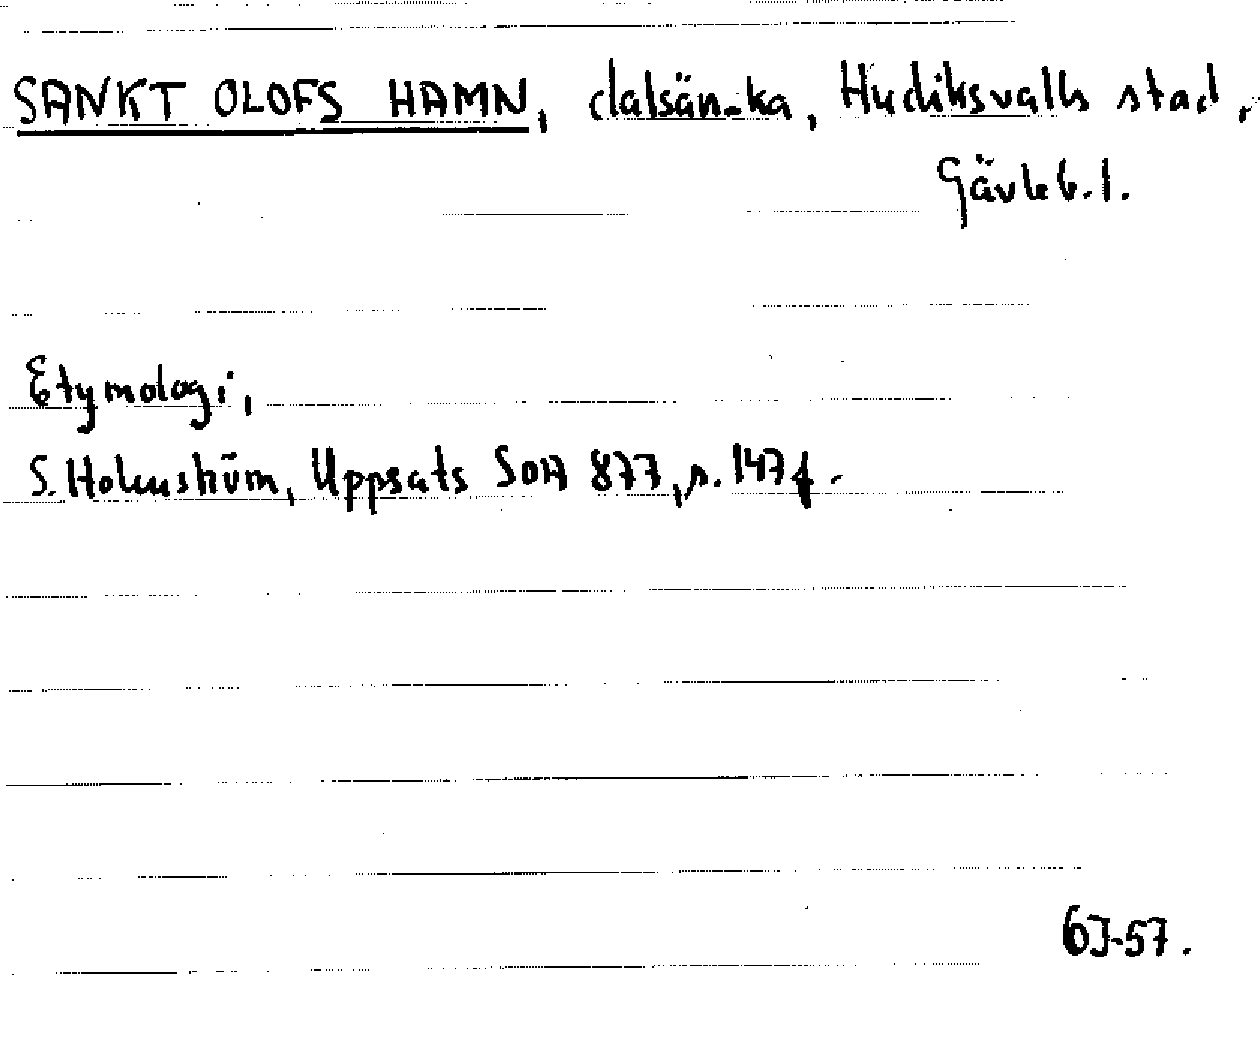 SANKT OLOFS HAMN, dalsänka, Hudiksvalls stad,
Gävleb. l.
Etymologi,
S. Holmström, Uppsats SOA 877, s. 147 f.
GJ-57.